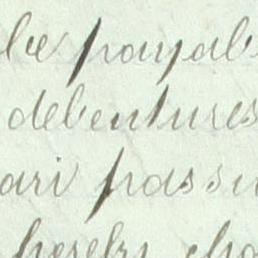 be payab
debentures
ari passu